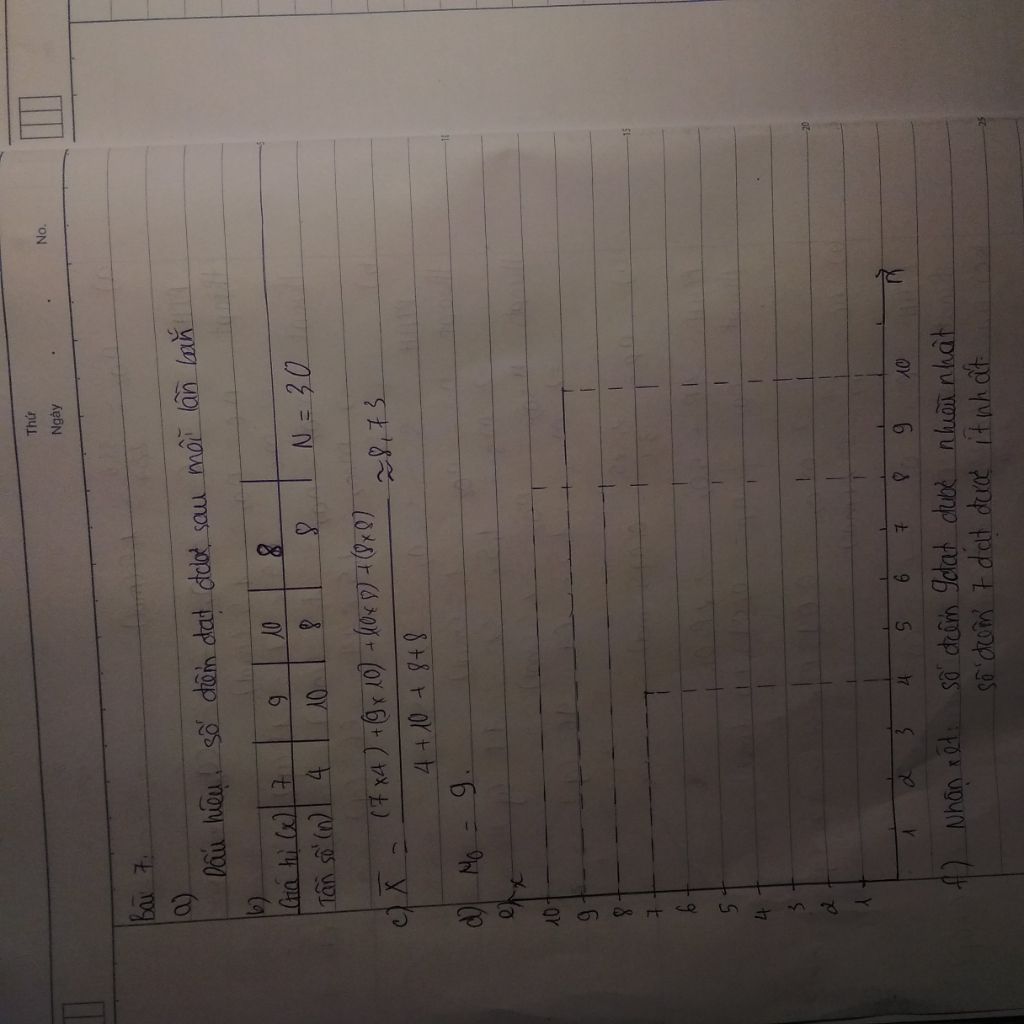 Thứ
Ngày
No.
Bài 7:
a)
Dấu hiệu: số điểm đạt được sau mỗi lần bắn
b)
Giá trị (x) 7 9 10 8
Tần số (n) 4 10 8 8 N = 30
c) X = (7x4) + (9x10) + (10x8) + (8x8) ≈ 8,73
4 + 10 + 8 + 8
d) M₀ = 9.
e) x
10
9
8
7
6
5
4
3
2
1
1 2 3 4 5 6 7 8 9 10 n
f) Nhận xét: số điểm 9 đạt được nhiều nhất
số điểm 7 đạt được ít nhất.
5
10
15
20
25